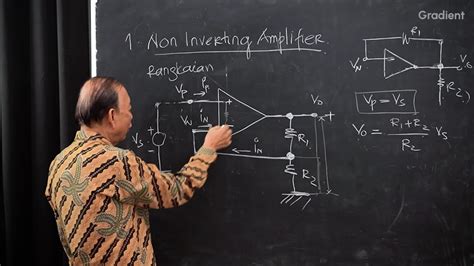 Gradient
1. Non Inverting Amplifier.
Rangkaian
R1
VN
Vo
VP iP
VN iN
VS
+
-
+
-
Vo
+
R1
iN
R2
-
VP = VS
Vo = R1+R2 / R2 VS